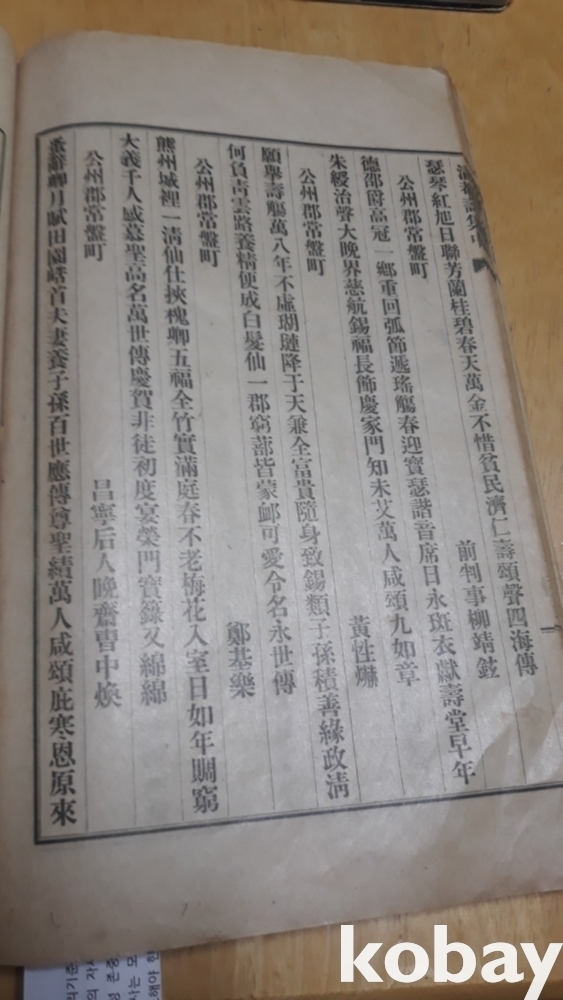 瑟琴紅旭日聯芳蘭桂碧春天萬金不惜貧民濟仁壽頌聲四海傳
公州郡常盤町 前判事柳靖鉉
德邵爵高冠一鄉重回弧節遞瑤觴春迎寶瑟諧音席日永斑衣獻壽堂早年
朱綬治聲大晚界慈航錫福長飾慶家門知未艾萬人咸頌九如章
公州郡常盤町 黃性㶇
願舉壽觴萬八年不虛瑚璉降于天兼全富貴隨身致錫類子孫積善緣政淸
何負靑雲路養精便成白髮仙一郡窮蔀皆蒙䘏可愛令名永世傳
公州郡常盤町 鄭基樂
熊州城裡一淸仙仕挾槐卿五福全竹實滿庭春不老梅花入室日如年賙窮
大義千人感慕聖高名萬世傳慶賀非徒初度宴榮門寶籙又綿綿
公州郡常盤町 昌寧后人晚齋曺中煥
月賦田園峙首夫妻養子孫百世應傳尊聖績萬人咸頌庇寒恩原來
kobay